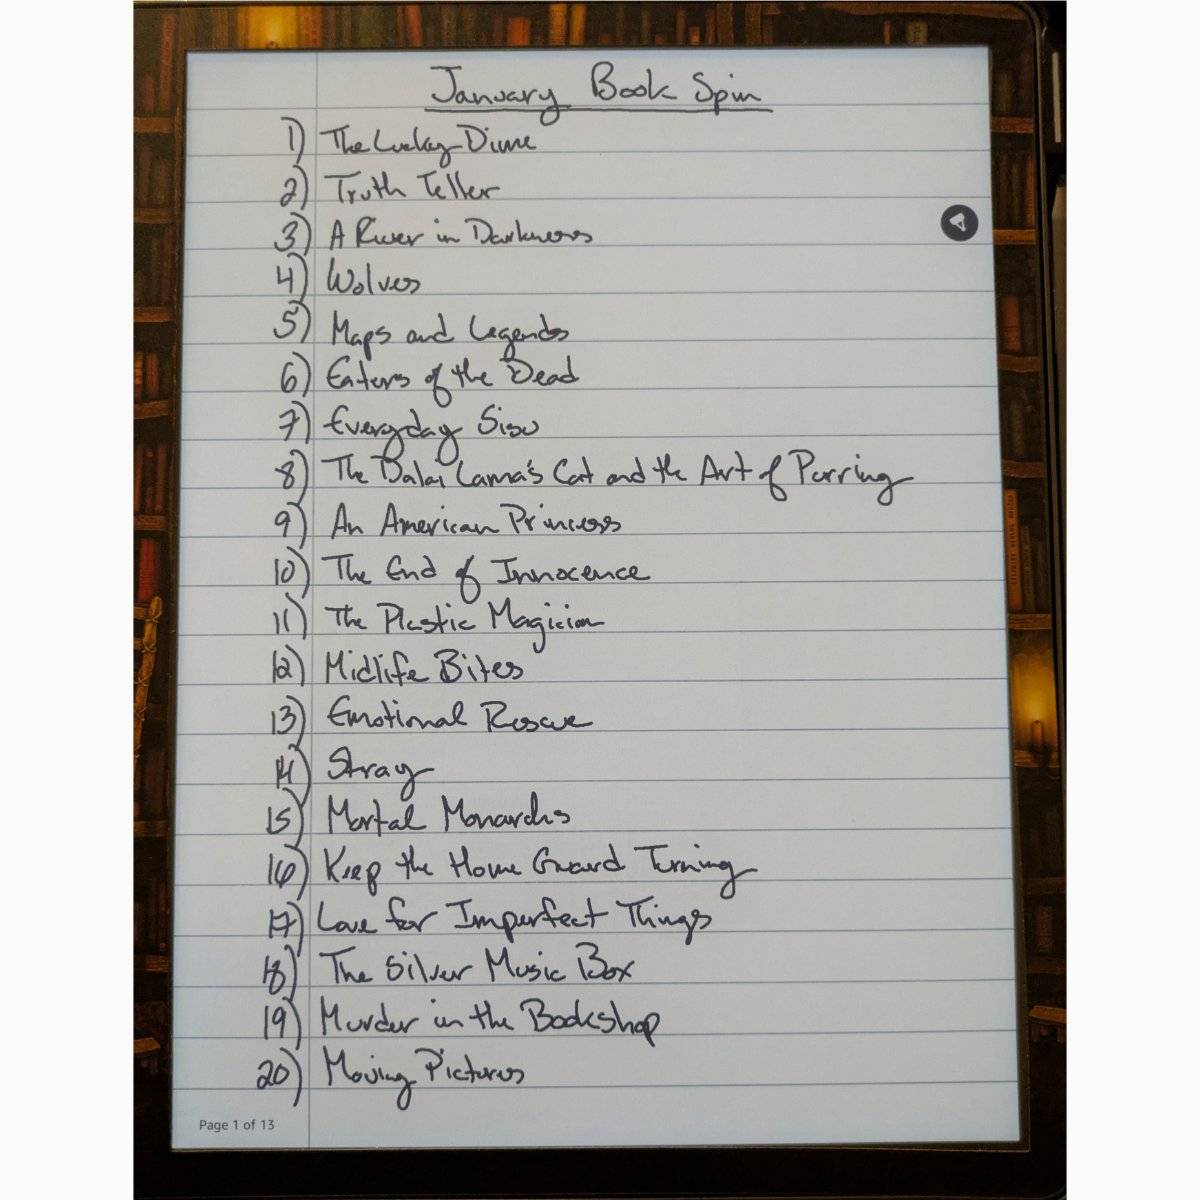 January Book Spin
1) The Lucky Dime
2) Truth Teller
3) A River in Darkness
4) Wolves
5) Maps and Legends
6) Eaters of the Dead
7) Everyday Sisu
8) The Dalai Lama's Cat and the Art of Purring
9) An American Princess
10) The End of Innocence
11) The Plastic Magician
12) Midlife Bites
13) Emotional Rescue
14) Stray
15) Mortal Monarchs
16) Keep the Home Guard Turning
17) Love for Imperfect Things
18) The Silver Music Box
19) Murder in the Bookshop
20) Moving Pictures
Page 1 of 13